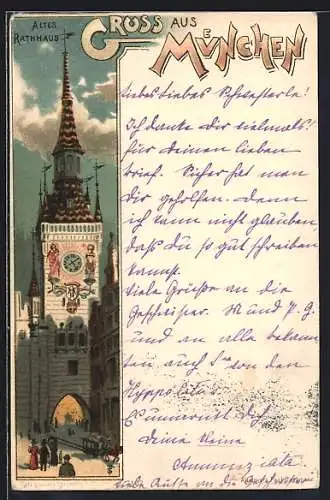 Altes
Rathhaus
Gruss aus
Muenchen
Liebes liebes Schwesterle!
Ich danke Dir vielmals
für Deinen lieben
Brief. Sicher hat man
Dir geholfen. Denn
ich kann nicht glauben,
daß Du so gut schreiben
kannst.
Viele Grüße an die
Geschwister. M und P. G.
und an alle bekann
ten, auch von
Hyppolitus
Es umarmt Dich
Deine kleine
Annunziata
viele an die